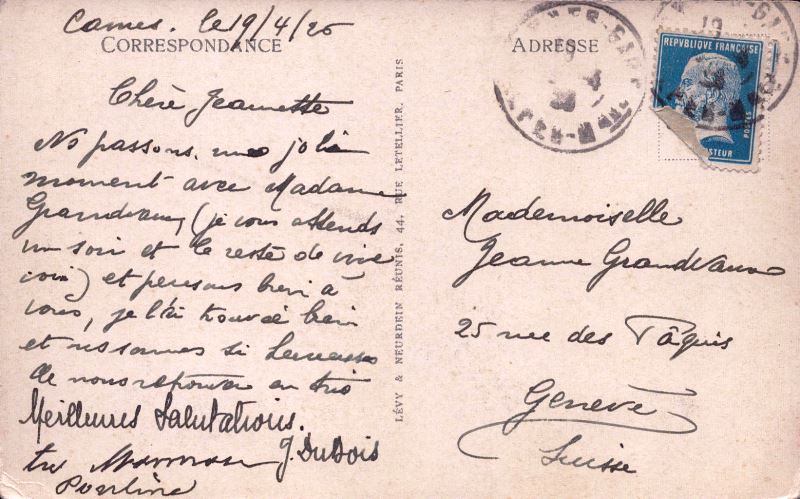 Cannes. le 19/4/26
CORRESPONDANCE
Chère Jeannette
Ns passons une jolie
moment avec Madame
Grandvaux (je vous attends
un soir et le reste de vive
voix) et pensons bien à
vous, je l'ai trouvé bien
et ns sommes si heureuses
de nous retrouver en trio
Meilleures Salutations.
J. DuBois
Pauline
LÉVY & NEURDEIN RÉUNIS, 44, RUE LETELLIER, PARIS
ADRESSE
REPVBLIQVE FRANÇAISE
POSTES
PASTEUR
Mademoiselle
Jeanne Grandvaux
25 rue des Pâquis
Genève
Suisse